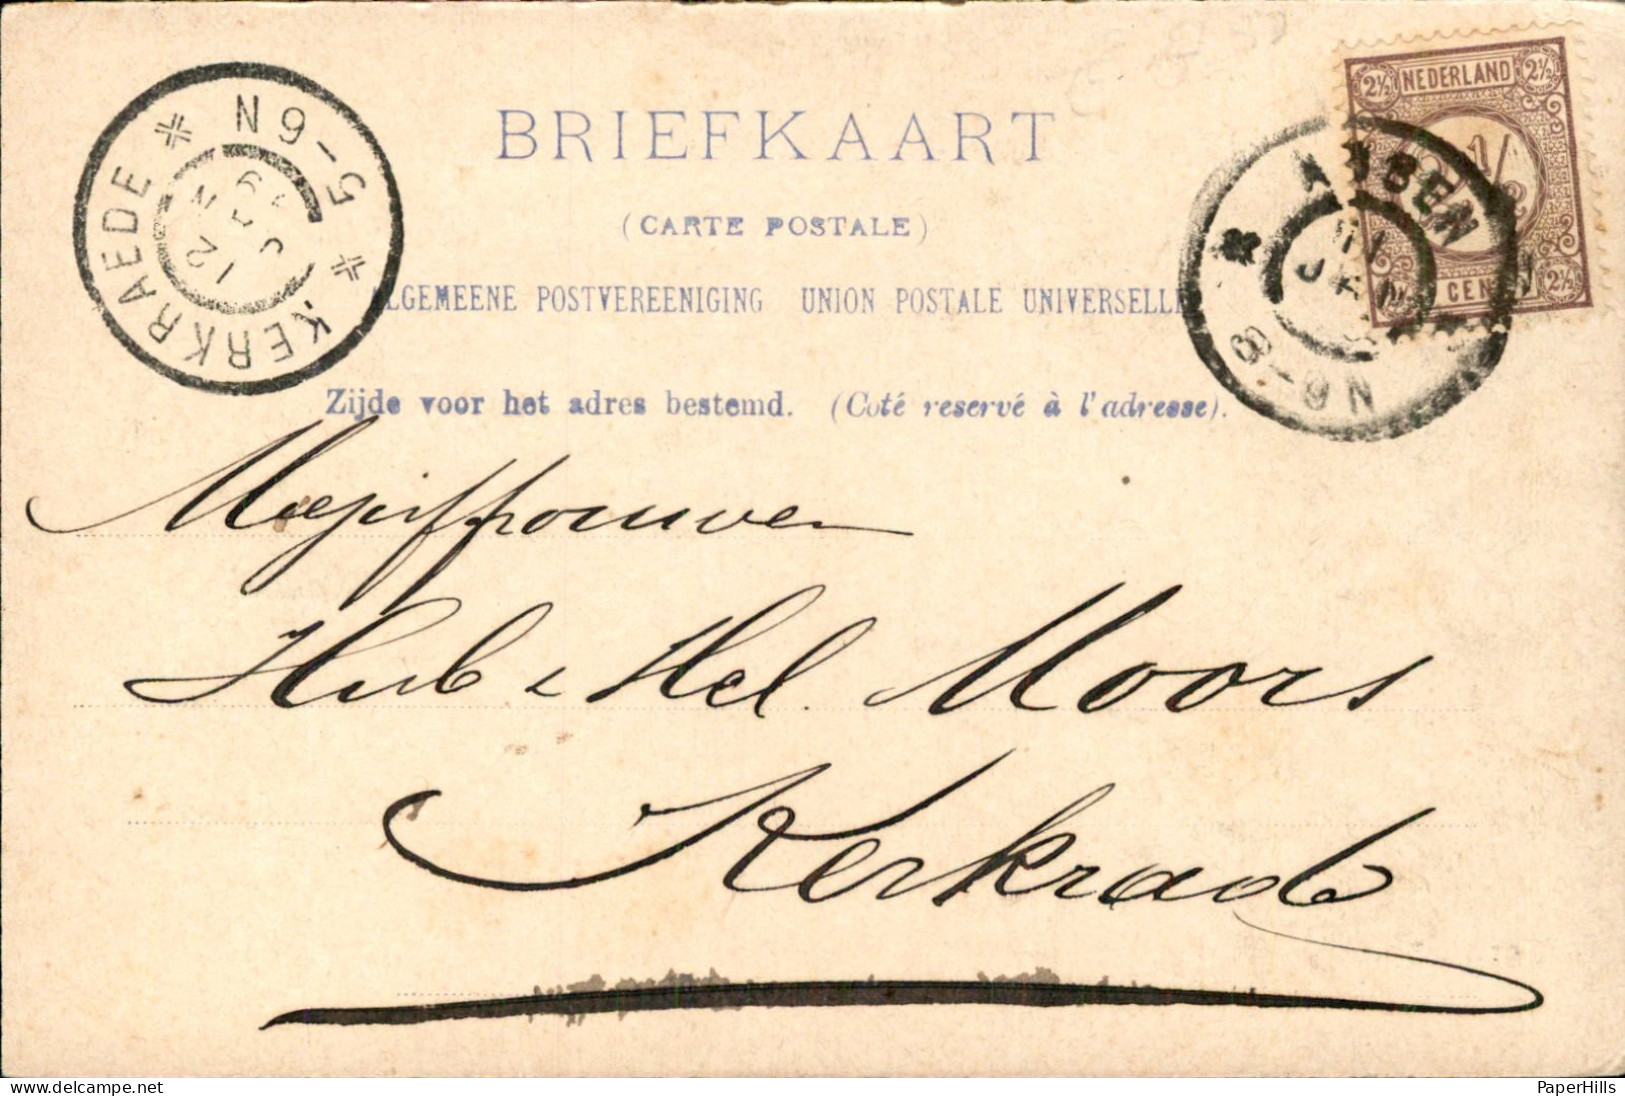 BRIEFKAART
(CARTE POSTALE)
ALGEMEENE POSTVEREENIGING UNION POSTALE UNIVERSELLE
Zijde voor het adres bestemd. (Coté reservé à l'adresse).
KERKRAEDE * N 9-5 *
12
NEDERLAND
2½ 2½
2 1/2
CENT
2½
N 8-9
Mejuffrouwen
Hub & Hel. Moors
Kerkrade
PaperHills